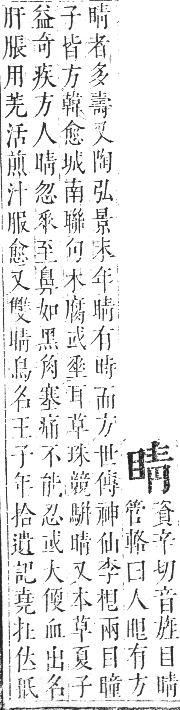 睛資辛切音旌目睛
管輅曰人眼有方
睛者多壽又陶弘景末年睛有時而方世傳神仙李根兩目瞳
子皆方韓愈城南聯句木腐或垂耳草珠競駢睛又本草夏子
益奇疾方人睛忽垂至鼻如黑角塞痛不能忍或大便血出名
肝脹用羌活煎汁服愈又雙睛鳥名王子年拾遺記堯在位祇